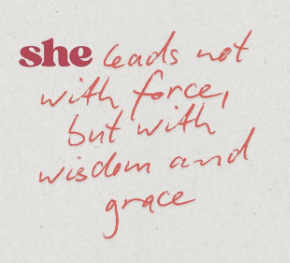 she leads not
with force,
but with
wisdom and
grace